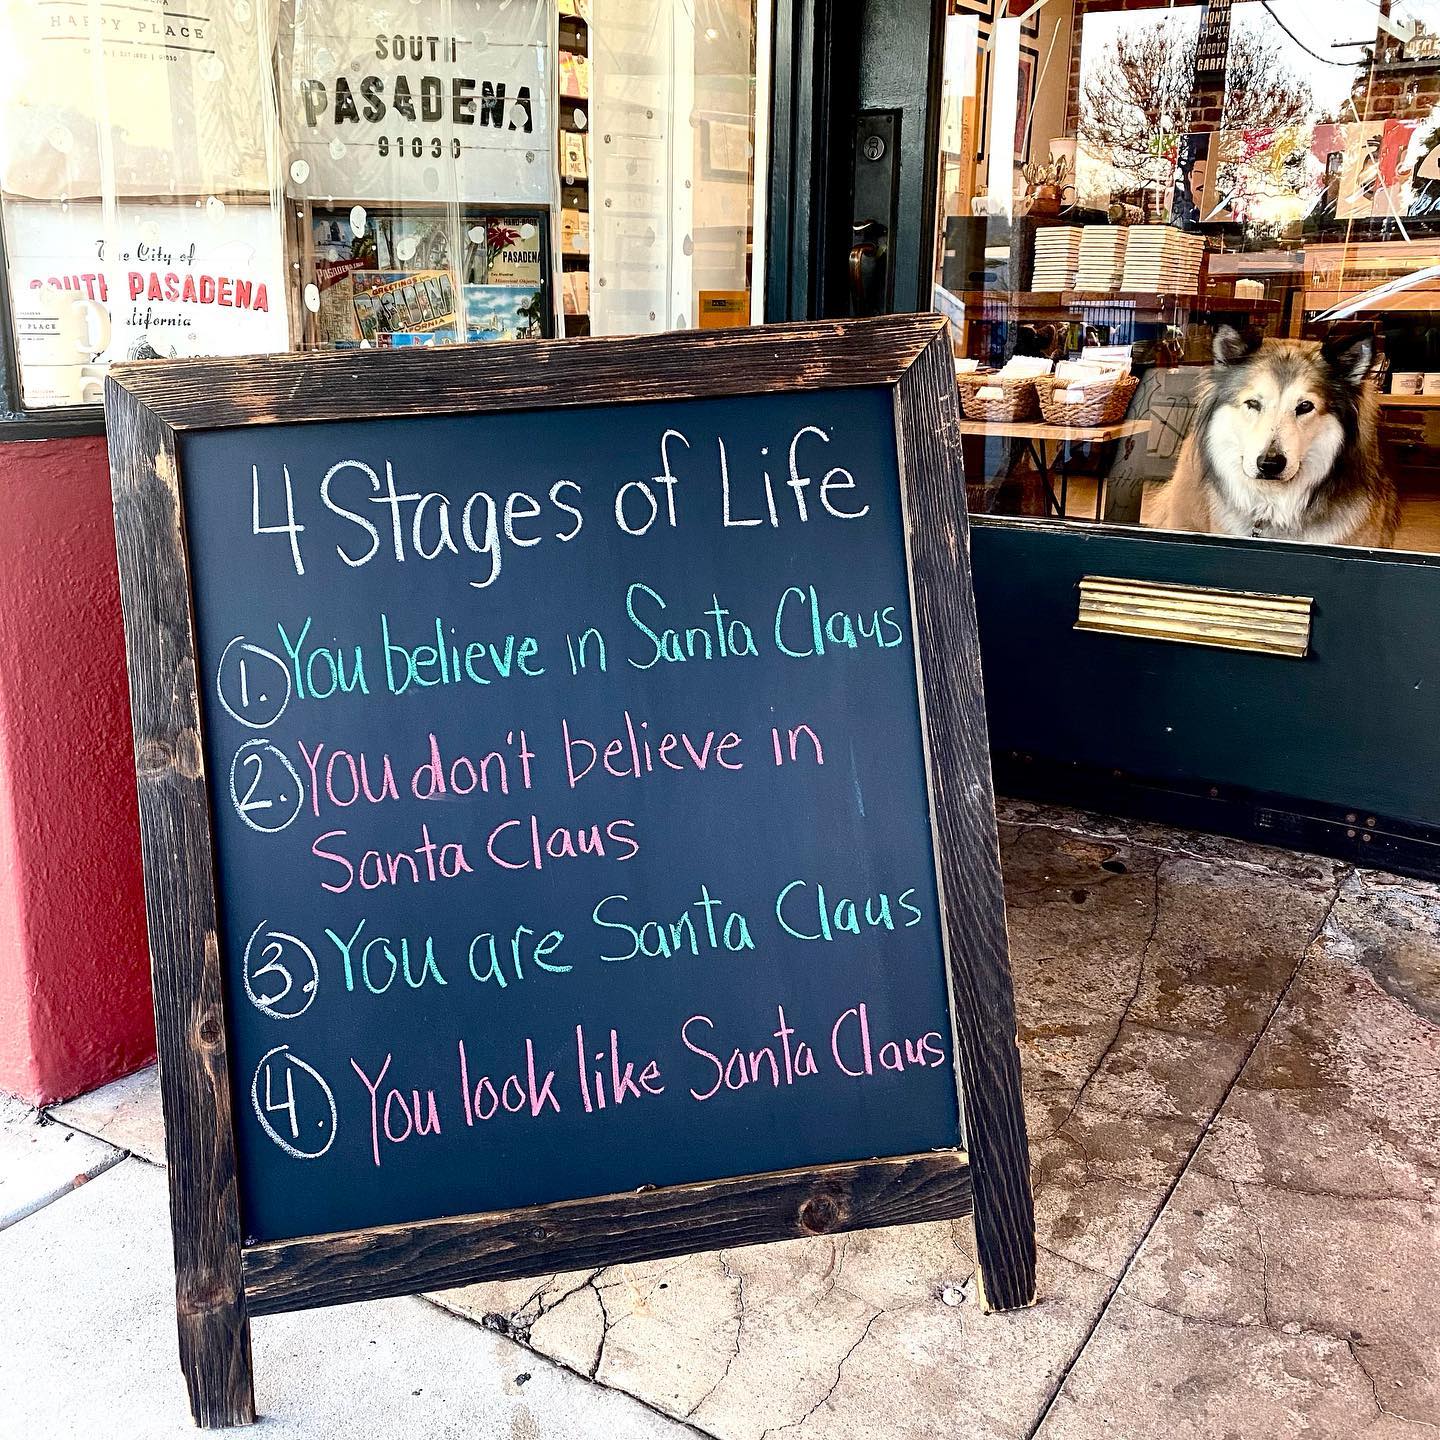 HAPPY PLACE
SOUTH
PASADENA
91030
The City of
SOUTH PASADENA
California
PLACE
PASADENA
GREETINGS FROM
CALIFORNIA
PASADENA
MONTE
ARROYO
GARFIELD
4 Stages of Life
1. You believe in Santa Claus
2. You don't believe in
Santa Claus
3. You are Santa Claus
4. You look like Santa Claus